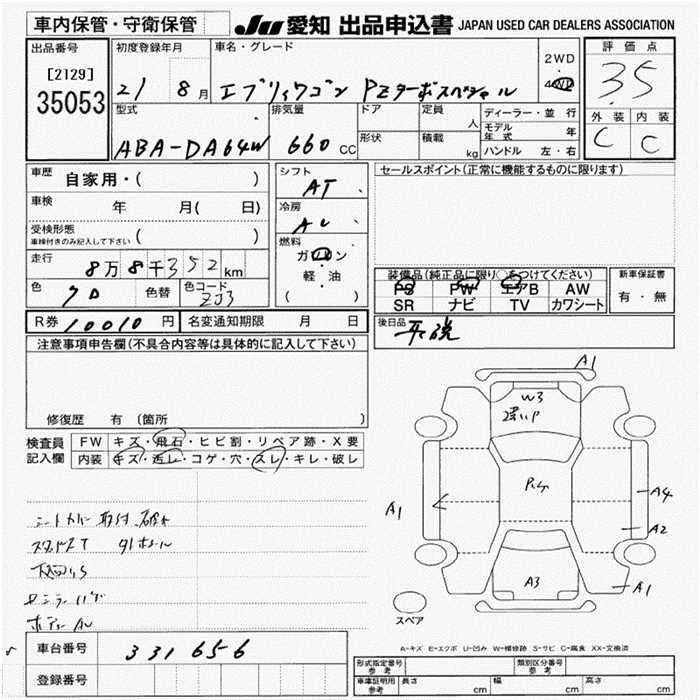 車内保管・守衛保管 JU 愛知 出品申込書 JAPAN USED CAR DEALERS ASSOCIATION
出品番号 初度登録年月 車名・グレード 2WD 評価点
[2129] 21 8月 エブリィワゴン PZターボスペシャル 4WD 3.5
35053
型式 排気量 ドア 定員 人 ディーラー・並行 外装 内装
ABA-DA64W 660 CC 形状 積載 kg モデル年式 年 C C
ハンドル 左・右
車歴 自家用・( ) シフト AT セールスポイント(正常に機能するものに限ります)
車検 年 月( 日) 冷房
受検形態 ( )
車検付きのみ記入して下さい 燃料
走行 8万8千352km ガソリン
軽・油 装備品(純正品に限り○をつけてください) 新車保証書
色 クロ 色替 色コード ZJ3 ( ) PS PW エアB AW 有・無
SR ナビ TV カワシート
R券 10010円 名変通知期限 月 日 後日品
注意事項申告欄(不具合内容等は具体的に記入して下さい)
修復歴 有 (箇所 )
検査員記入欄 FW キズ・飛石・ヒビ割・リペア跡・X要
内装 キズ・汚レ・コゲ・穴・スレ・キレ・破レ
A1
W3
A1 A4
A2
A3 A1
スペア
A-キズ E-エクボ U-凹み W-補修跡 S-サビ C-腐食 XX-交換済
車台番号 331656
登録番号
形式指定番号 参考 類別区分番号 参考
車庫証明用 参考 長さ cm 幅 cm 高さ cm